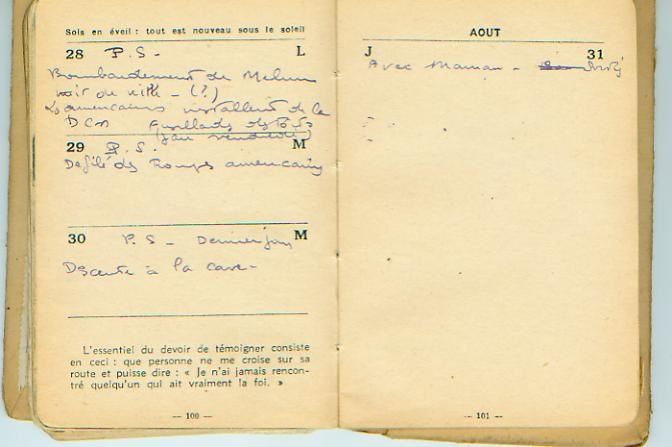 Sois en éveil : tout est nouveau sous le soleil
28 P.S - L
Bombardement de Melun
voir de ville - (?)
americains installent de la
DCA
29 P.S. M
Defilé des Troupes americaines
30 P.S - Dernier jour M
Dscente à la cave -
L'essentiel du devoir de témoigner consiste
en ceci : que personne ne me croise sur sa
route et puisse dire : « Je n'ai jamais rencon-
tré quelqu'un qui ait vraiment la foi. »
— 100 —
AOUT
J 31
Avec Maman -
— 101 —